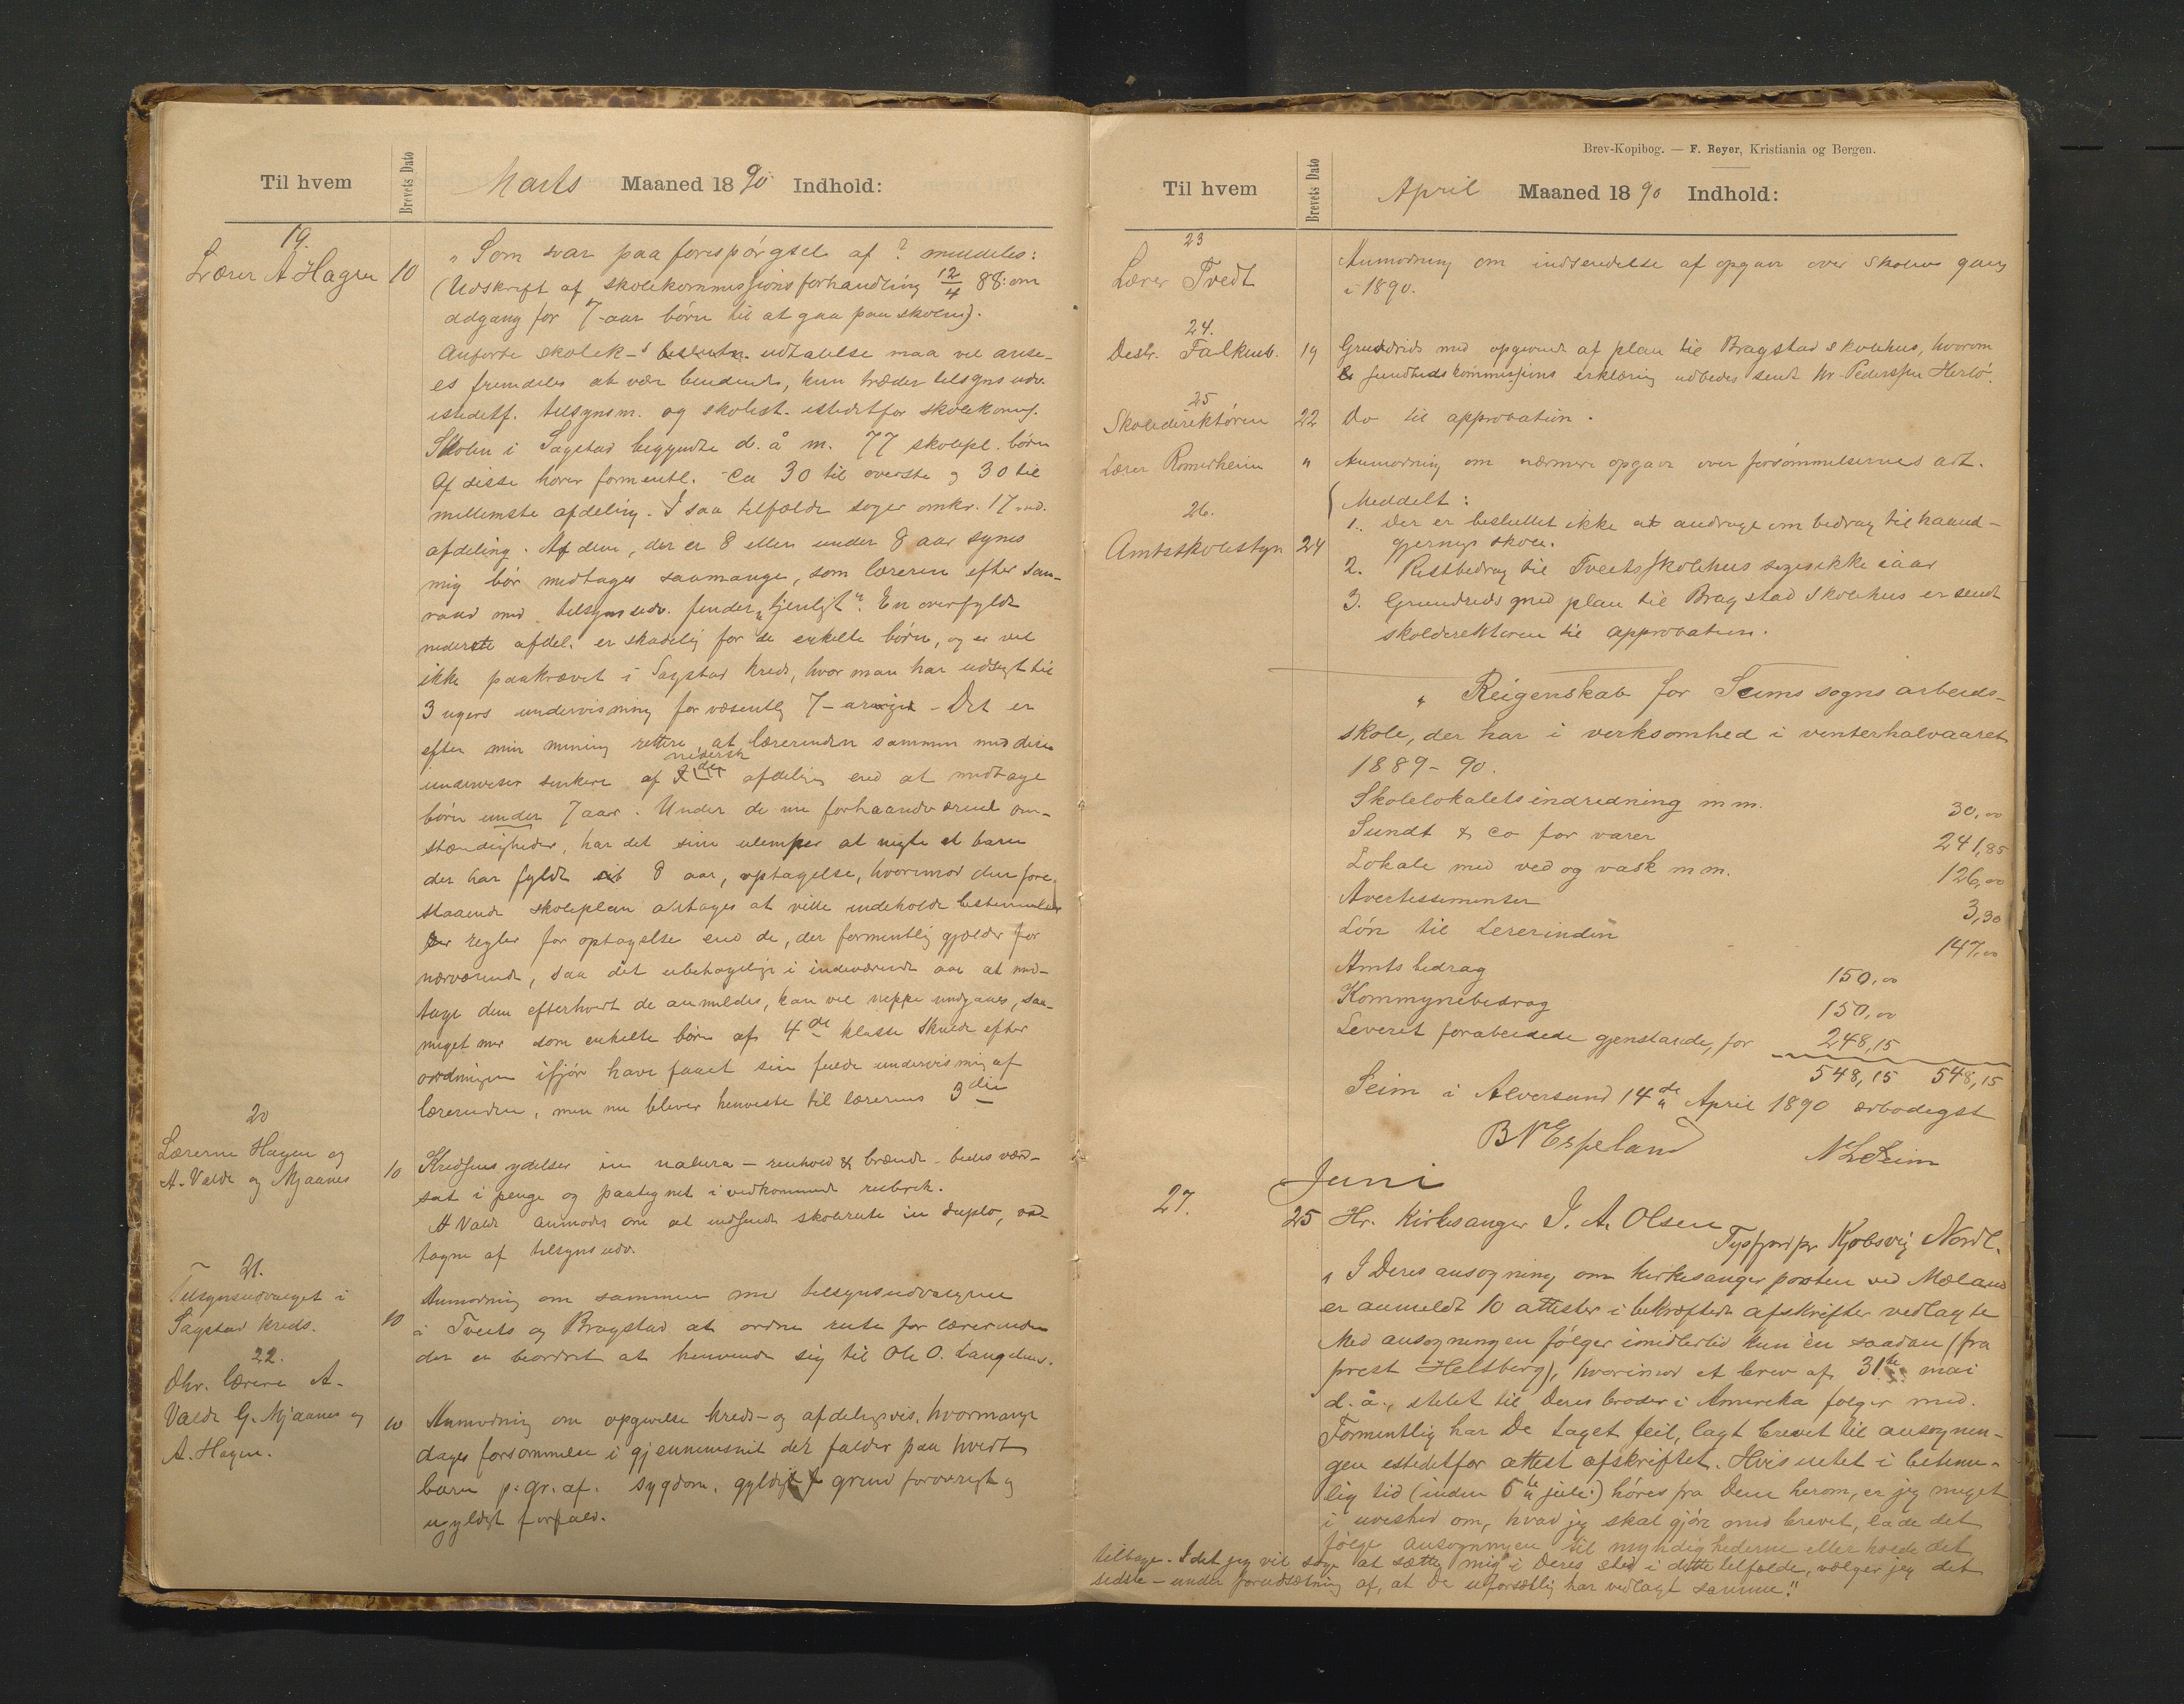 Til hvem
Brevets Dato
Marts Maaned 1890 Indhold:
19.
Lærer A Hagen 10
„Som svar paa forespörgsel af ? meddeles:
(Udskrift af skolekommissionsforhandling 12/4 88: om
adgang for 7-aar börn til at gaa paa skolen).
Anförte skolek-s beslutn. udtalelse maa vel anse-
es fremdeles at vær bindende, kun træder tilsynsudv.
istedetf. tilsynsm. og skolest. istedetfor skolekomms.
Skolen i Sagstad begyndte d. å m. 77 skolepl. börn
Af disse hörer formentl. ca 30 til överste og 30 til
mellemste afdeling. I saa tilfælde söger omkr. 17 ned.
afdeling. Af dem, der er 8 eller under 8 aar synes
mig bör medtages saamange, som læreren efter sam-
raad med tilsynsudv. finder „tjenligt“. En overfyldt
nederste afdel. er skadelig for de enkelte börn, og er vel
ikke paakrævet i Sagstad kreds, hvor man har udsigt til
3 ugers undervisning for væsentlig 7-arige - Det er
efter min mening rettere at lærerinden sammen med disse
nederste
underviser senkere af 2den afdeling end at medtage
börn under 7 aar. Under de nu forhaandværende om-
stændigheder, har det sine ulemper at negte et barn
der har fyldt sit 8 aar, optagelse, hvorimod den fore-
staaende skoleplan antages at ville indeholde bestemmelser
regler for optagelse end de, der formentlig gjælder for
nærværende, saa det ubehagelige i indeværende aar at med-
tage dem efterhvert de anmeldes, kan vel neppe undgaaes, saa-
meget mer som enkelte börn af 4de klasse skulde efter
ordningen ifjör have faaet sin fulde undervisning af
lærerinden, men nu bliver henviste til lærerens 3die
20
Lærerne Hagen og
A. Valde og Mjaanes 10
Kredsens ydelser in natura - renhold & brænde - bedes værd-
sat i penge og paategnet i vedkommende rubrik.
A Valde anmodes om at indsende skolerute in duplo, ved-
tagne af tilsynsudv.
21.
Tilsynsudvalget i
Sagstad kreds. 10
Anmodning om sammen med tilsynsudvalgene
i Tveits og Bragstad at ordne rute for lærerinden
der er beordret at henvende sig til Ole O. Langelan.
22.
Dhr. lærere A.
Valde G. Mjaanes og
A. Hagen. 10
Anmodning om opgivelse kreds- og afdelingsvis, hvormange
dages forsömmelse i gjennemsnit der falder paa hvert
barn p. gr. af. sygdom, gyldigt grund forövrigt og
ugyldigt forfald.
Brev-Kopibog. — F. Beyer, Kristiania og Bergen.
Til hvem
Brevets Dato
April Maaned 1890 Indhold:
23
Lærer Tvedt
Anmodning om indsendelse af opgave over skolens gang
i 1890.
24.
Destr. Falkenb. 19
Grundrids med opgivende af plan til Bragstad skolehus, hvorom
sundhedskommissions erklæring udbedes sendt hr. Pederssen Herlö.
25
Skoledirektören 22 Do til approbation.
Lærer Romerheim " Anmodning om nærmere opgave over forsömmelsernes art.
26.
Amtsskolestyr 24
Meddelt:
1. Der er besluttet ikke at andrage om bidrag til haand-
gjernings skole.
2. Restbidrag til Tveits skolehus söges ikke iaar
3. Grundrids med plan til Bragstad skolehus er sendt
skoldirektören til approbation.
„Reigenskab for Seims sogns arbeids-
skole, der har i verksomhed i venterhalvaaret
1889-90.
Skolelokalets indredning m m. 30,00
Sundt & co for varer 241,85
Lokale med ved og vask m m. 126,00
Avertissementer 3,30
Lön til Lererinden 147,00
Amtsbedrag 150,00
Kommynebedrag 150,00
Leveret forabeidede gjenstande, for 248,15
548,15 548,15
Seim i Alversund 14de April 1890 ærbödigst
B N Espeland N L Seim
Juni
27. 25 Hr. Kirkesanger J. A. Olsen
Tysfjord pr Kjöbsvig Nordl.
„I Deres ansögning om kirkesangerposten ved Mæland
er anmeldt 10 attester i bekræftede afskrifter vedlagte
Med ansögningen fölger imidlertid kun én saadan (fra
prest Heltberg), hvorimod et brev af 31te mai
d. å., stilet til Deres broder i Amerika fölger med.
Formentlig har De taget feil, lagt brevet til ansögnin-
gen istedetfor attest afskriftet. Hvis intet i betime-
lig tid (inden 5te juli) höres fra Dem herom, er jeg meget
i uvished om, hvad jeg skal gjöre med brevet, lade det
fölge ansögningen til myndighederne eller holde det
tilbage. Idet jeg vil söge at sætte mig i Deres sted i dette tilfælde, vælger jeg det
sidste - under forudsætning af, at De uforsætlig har vedlagt samme."